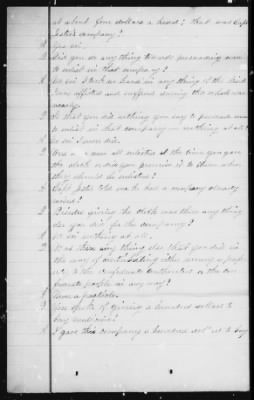 at about four dollars a head; that was Capt
company?
A Yes sir.
Q Did you do any thing towards persuading men
to enlist in that company?
A No sir I took no hand in any thing of the kind
I was afflicted and suffered during the whole war
nearly.
Q So that you did nothing you say to persuade men
to enlist in that company — nothing at all?
A No sir I never did.
Q Were men all enlisted at the time you gave
the cloth or did you promise it to them when
they should be enlisted?
A Capt told me he had a company already
raised?
Q Besides giving the cloth was there any thing
else you did for the company?
A No sir nothing at all.
Q Was there any thing else that you did in
the way of contributing either money or prop-
erty to the Confederate authorities or the con-
federate people in any way?
A Never a particle.
Q You spoke of giving a hundred dollars to
buy medicine?
A I gave this company a hundred dol to buy